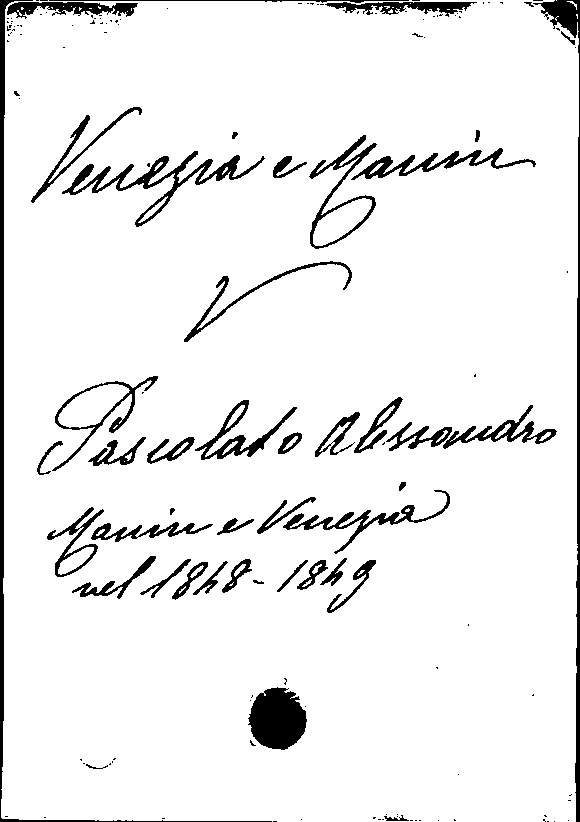 Venezia e Manin
V
Pascolato Alessandro
Manin e Venezia
nel 1848-1849